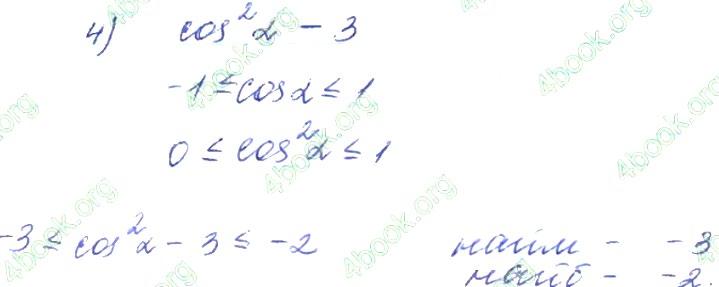 4) cos²α - 3
-1 ≤ cosα ≤ 1
0 ≤ cos²α ≤ 1
-3 ≤ cos²α - 3 ≤ -2 найм - -3
найб - -2.
4book.org
4book.org
4book.org
4book.org
4book.org
4book.org
4book.org
4book.org
4book.org